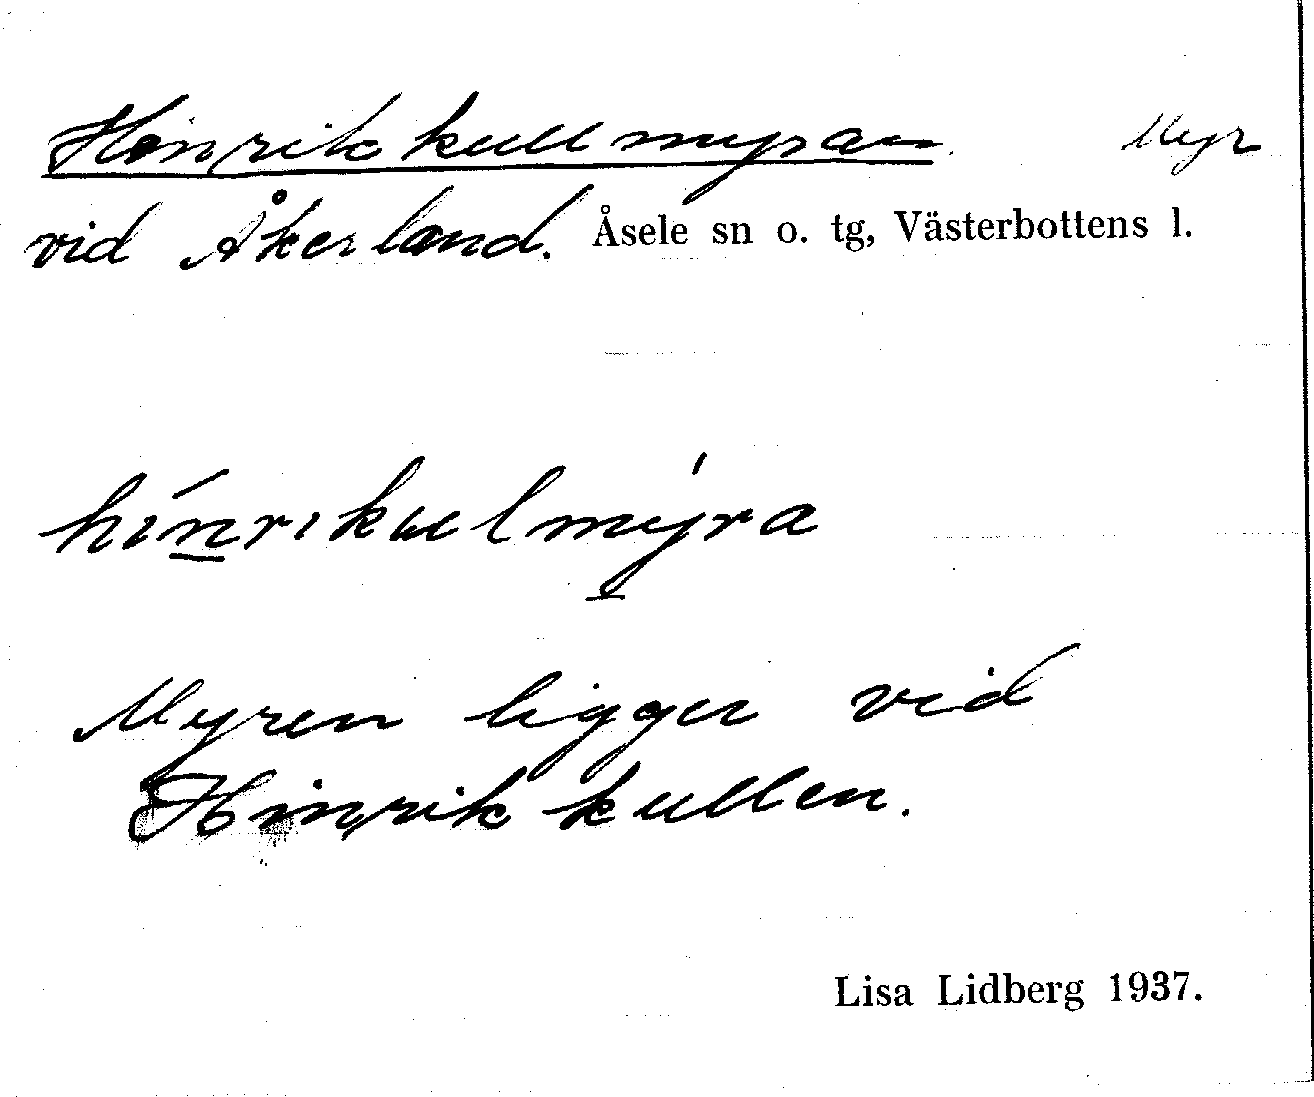 Hinrikkullmyran Myr
vid Åkerland. Åsele sn o. tg, Västerbottens l.
hínrikulmýra
Myren ligger vid
Hinrikkullen.
Lisa Lidberg 1937.